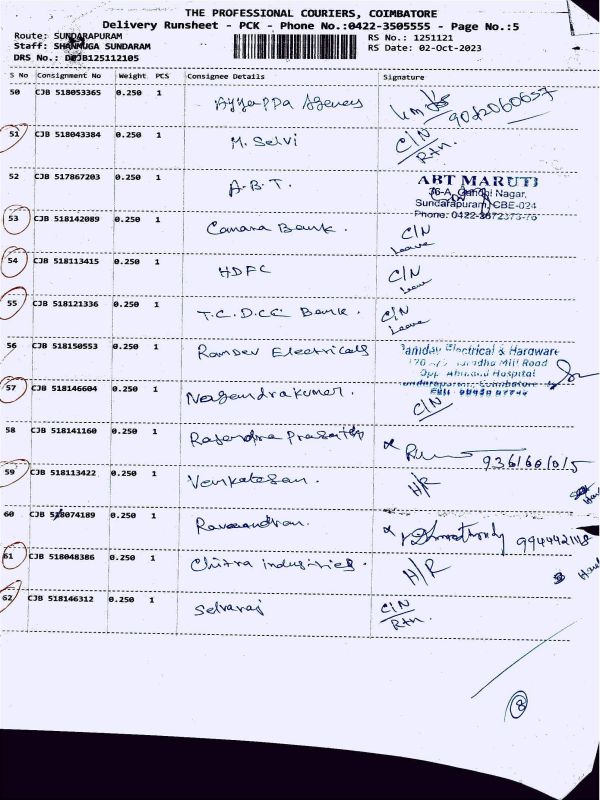 THE PROFESSIONAL COURIERS, COIMBATORE
Delivery Runsheet - PCK - Phone No.:0422-3505555 - Page No.:5
Route: SUNDARAPURAM RS No.: 1251121
Staff: SHANMUGA SUNDARAM RS Date: 02-Oct-2023
DRS No.: 125112105
S No Consignment No Weight PCS Consignee Details Signature
50 CJB 518053365 0.250 1 Ayyappa Agency 9042060657
51 CJB 518043384 0.250 1 M. Selvi C/N
Rtn.
52 CJB 517867203 0.250 1 A.B.T. ABT MARUTI
36-A, Gandhi Nagar,
Sundarapuram, CBE-024
Phone: 0422-2672373-76
53 CJB 518142089 0.250 1 Canara Bank. C/N
Leave
54 CJB 518113415 0.250 1 HDFC C/N
Leave
55 CJB 518121336 0.250 1 T.C.D.CC Bank. C/N
Leave
56 CJB 518150553 0.250 1 Ramdev Electricals Electrical & Hardware
Mill Road
Opp. Hospital
Coimbatore
57 CJB 518146604 0.250 1 Nagendrakumar. C/N
58 CJB 518141160 0.250 1 Rajendra Prasath
59 CJB 518113422 0.250 1 Venkatesan. H/R
60 CJB 518074189 0.250 1 9944421118
61 CJB 518048386 0.250 1 Chitra industries. H/R
62 CJB 518146312 0.250 1 Selvaraj C/N
Rtn.
8